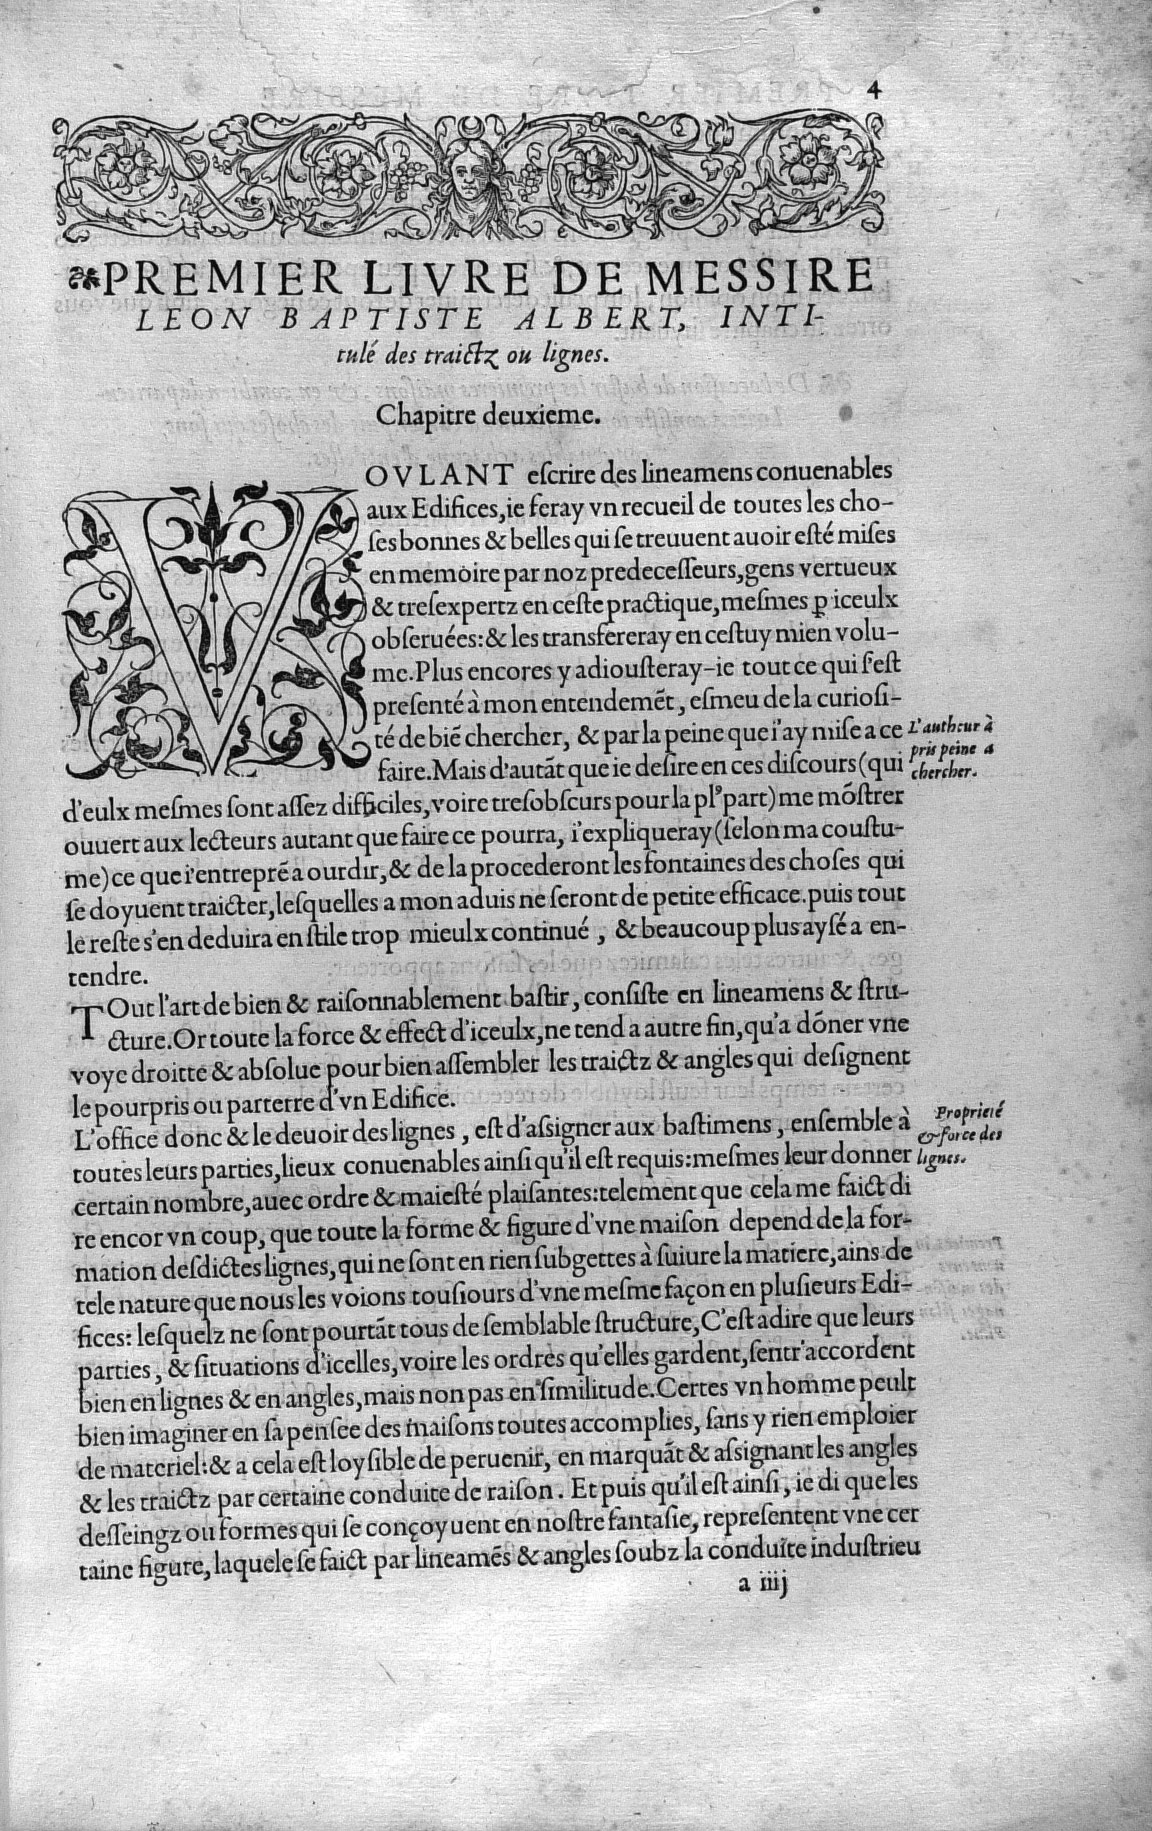 4
PREMIER LIVRE DE MESSIRE
LEON BAPTISTE ALBERT, INTI-
tulé des traictz ou lignes.
Chapitre deuxieme.
VOVLANT eſcrire des lineamens conuenables
aux Edifices, ie feray vn recueil de toutes les cho-
ſes bonnes & belles qui ſe treuuent auoir eſté miſes
en memoire par noz predeceſſeurs, gens vertueux
& treſexpertz en ceſte practique, meſmes ꝑ iceulx
obſeruées: & les transfereray en ceſtuy mien volu-
me. Plus encores y adiouſteray-ie tout ce qui s'eſt
preſenté à mon entendemẽt, eſmeu de la curioſi-
té de biẽ chercher, & par la peine que i'ay miſe a ce
faire. Mais d'autãt que ie deſire en ces diſcours (qui
L'autheur à
pris peine a
chercher.
d'eulx meſmes ſont aſſez difficiles, voire treſobſcurs pour la plꝰpart) me mõſtrer
ouuert aux lecteurs autant que faire ce pourra, i'expliqueray (ſelon ma couſtu-
me) ce que i'entreprẽ a ourdir, & de la procederont les fontaines des choſes qui
ſe doyuent traicter, leſquelles a mon aduis ne ſeront de petite efficace. puis tout
le reſte s'en deduira en ſtile trop mieulx continué, & beaucoup plus ayſé a en-
tendre.
TOut l'art de bien & raiſonnablement baſtir, conſiſte en lineamens & ſtru-
cture. Or toute la force & effect d'iceulx, ne tend a autre fin, qu'a dõner vne
voye droitte & abſolue pour bien aſſembler les traictz & angles qui deſignent
le pourpris ou parterre d'vn Edifice.
L'office donc & le deuoir des lignes, eſt d'aſsigner aux baſtimens, enſemble à
toutes leurs parties, lieux conuenables ainſi qu'il eſt requis: meſmes leur donner
Proprieté
& force des
lignes.
certain nombre, auec ordre & maieſté plaiſantes: telement que cela me faict di
re encor vn coup, que toute la forme & figure d'vne maiſon depend de la for-
mation deſdictes lignes, qui ne ſont en rien ſubgettes à ſuiure la matiere, ains de
tele nature que nous les voions touſiours d'vne meſme façon en pluſieurs Edi-
fices: leſquelz ne ſont pourtãt tous de ſemblable ſtructure, C'eſt adire que leurs
parties, & ſituations d'icelles, voire les ordres qu'elles gardent, ſentr'accordent
bien en lignes & en angles, mais non pas en ſimilitude. Certes vn homme peult
bien imaginer en ſa penſée des maiſons toutes accomplies, ſans y rien emploier
de materiel: & a cela eſt loyſible de peruenir, en marquãt & aſsignant les angles
& les traictz par certaine conduite de raiſon. Et puis qu'il eſt ainſi, ie di que les
deſſeingz ou formes qui ſe conçoyuent en noſtre fantaſie, repreſentent vne cer
taine figure, laquele ſe faict par lineamẽs & angles ſoubz la conduite induſtrieu
a iiij